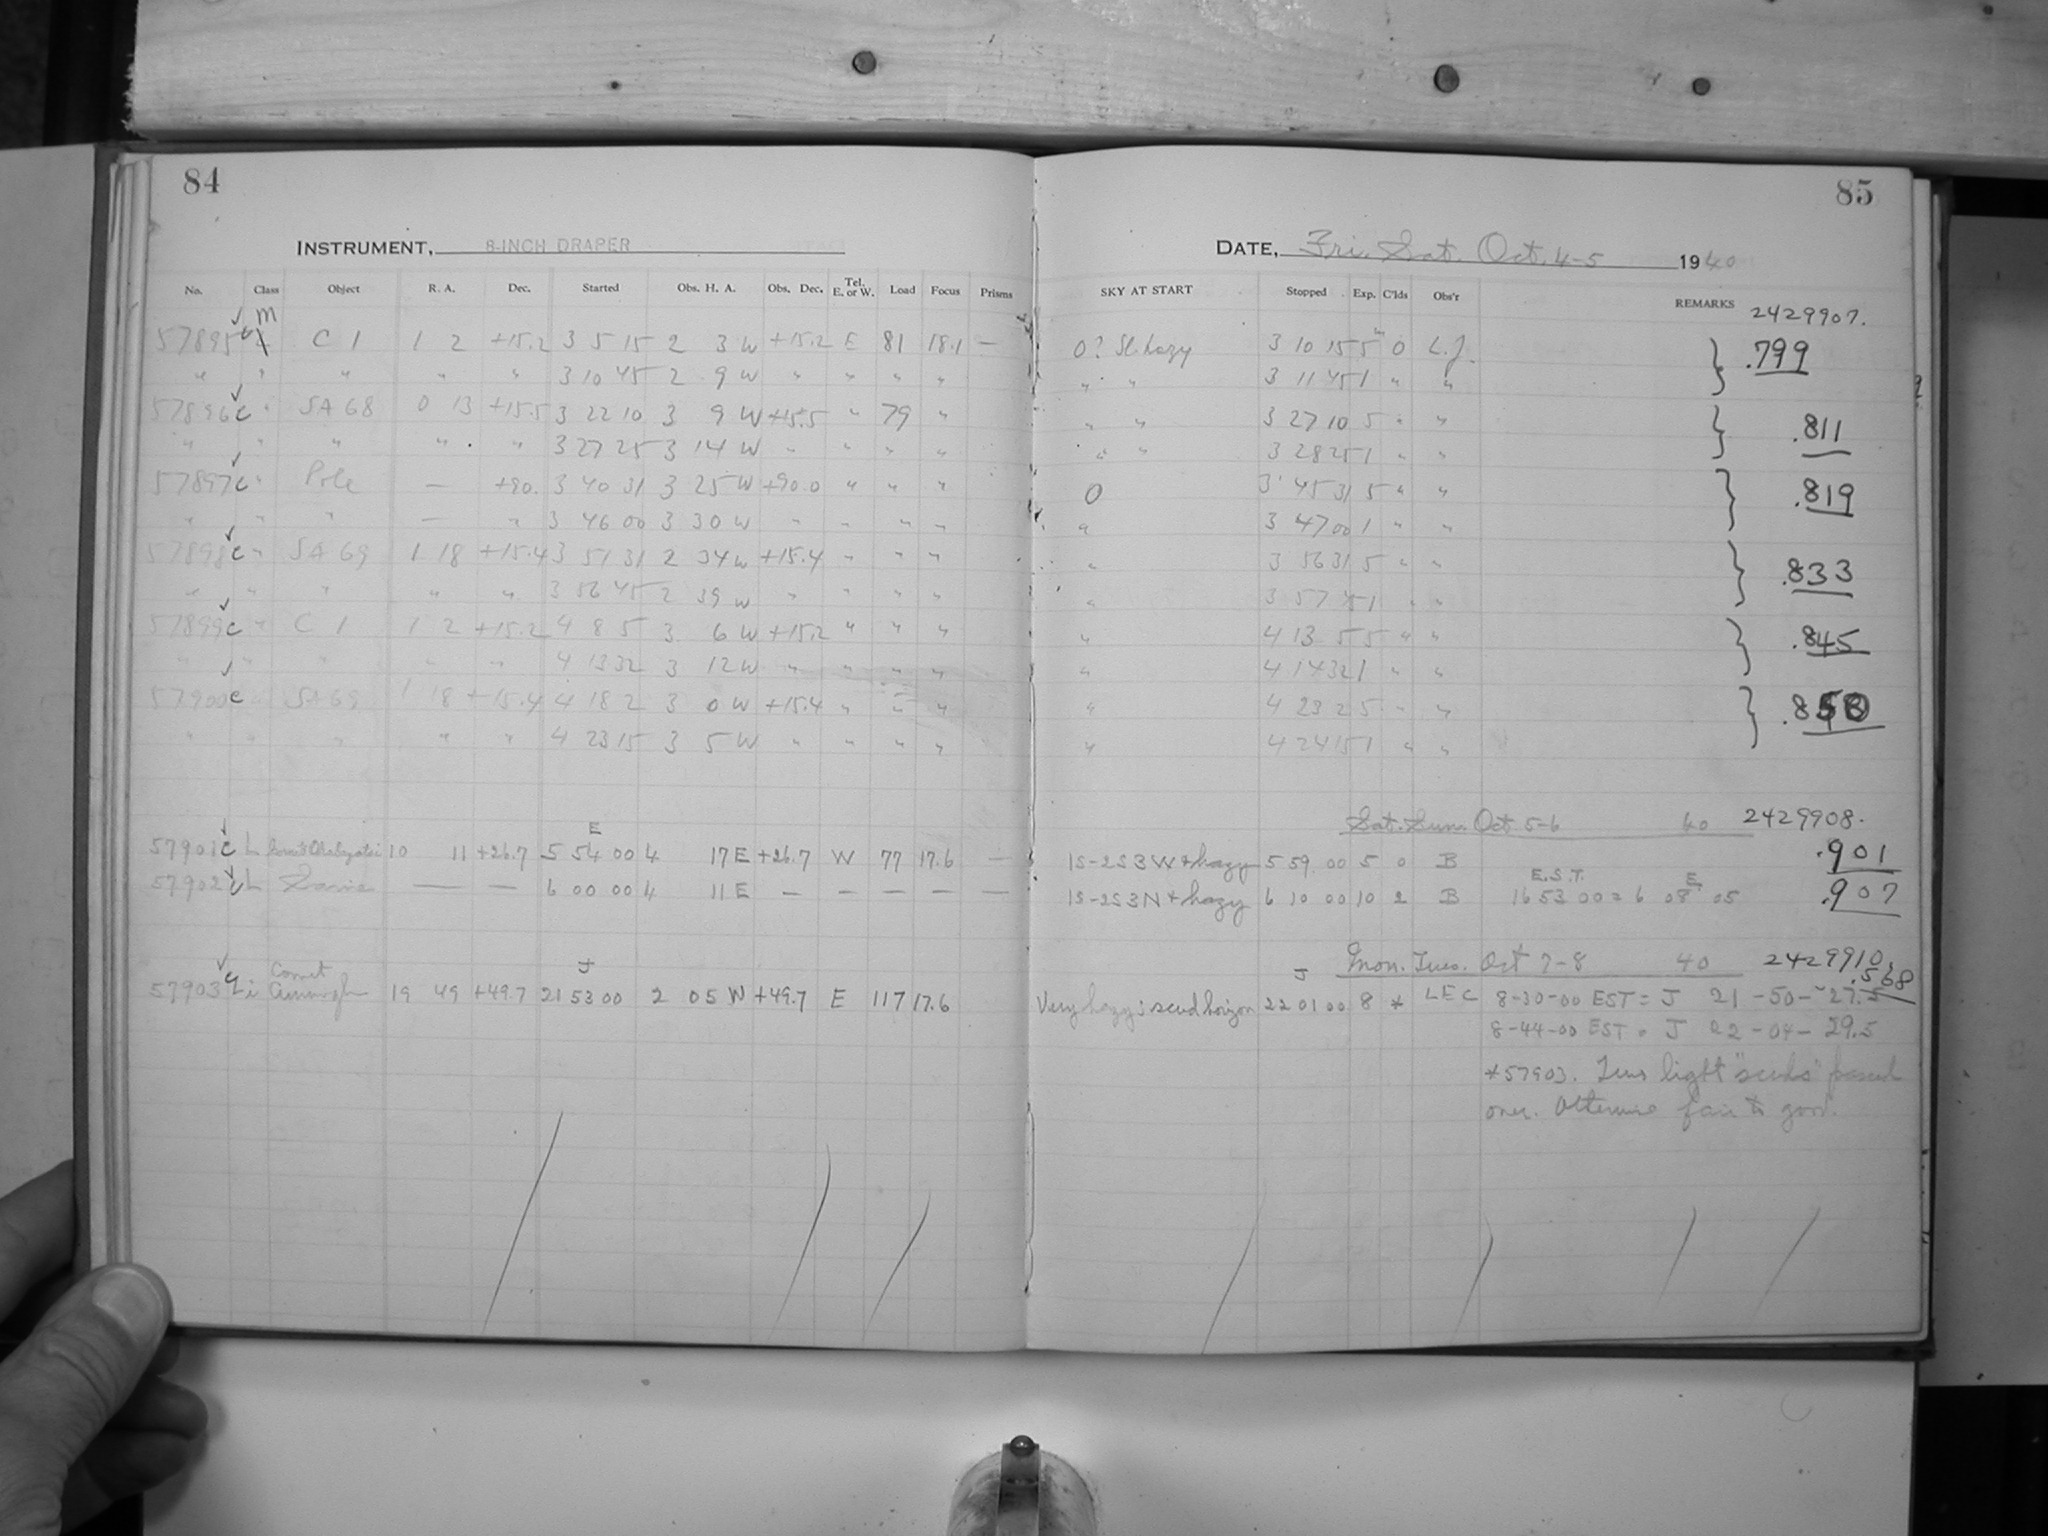 84
INSTRUMENT, 8-INCH DRAPER
No. Class Object R. A. Dec. Started Obs. H. A. Obs. Dec. Tel. E. or W. Load Focus Prisms
m
57895 C 1 1 2 +15.2 3 5 15 2 3 W +15.2 E 81 18.1 —
" " " " " 3 10 45 2 9 W " " " "
57896 c " SA 68 0 13 +15.5 3 22 10 3 9 W +15.5 " 79 "
" " " " " 3 27 25 3 14 W " " " "
57897 c " Pole — +90. 3 40 31 3 25 W +90.0 " " "
" " " — " 3 46 00 3 30 W " " " "
57898 c " SA 69 1 18 +15.4 3 51 31 2 34 W +15.4 " " "
" " " " " 3 56 45 2 39 W " " " "
57899 c " C 1 1 2 +15.2 4 8 5 3 6 W +15.2 " " "
" " " " " 4 13 32 3 12 W " " " "
57900 c SA 69 1 18 +15.4 4 18 2 3 0 W +15.4 " " "
" " " " " 4 23 15 3 5 W " " " "
E
57901 c L 10 11 +26.7 5 54 00 4 17 E +26.7 W 77 17.6 —
57902 c L — — 6 00 00 4 11 E — — — — —
J
57903 i Comet Cunningham 19 49 +49.7 21 53 00 2 05 W +49.7 E 117 17.6
85
DATE, Fri. Sat. Oct. 4-5 1940
SKY AT START Stopped Exp. C'lds Obs'r REMARKS 2429907.
0? Sl. hazy 3 10 15 5 0 L.J. .799
" " 3 11 45 1 " "
" " 3 27 10 5 " " .811
" " 3 28 25 1 " "
0 3 45 31 5 " " .819
" 3 47 00 1 " "
" 3 56 31 5 " " .833
" 3 57 45 1 " "
" 4 13 5 5 " " .845
" 4 14 32 1 " "
" 4 23 2 5 " "
" 4 24 15 1 " "
Sat. Sun. Oct 5-6 40 2429908.
1S-2S3W+hazy 5 59 00 5 0 B .901
E.S.T. E
1S-2S3N+hazy 6 10 00 10 2 B 16 53 00 = 6 08 05 .907
Mon. Tues. Oct 7-8 40 2429910.
.568
J
Very hazy; scud horizon 22 01 00 8 * LEC 8-30-00 EST = J 21-50-27.5
8-44-00 EST = J 22-04-29.5
*57903. light "scuds" passed
over. Otherwise fair to good.